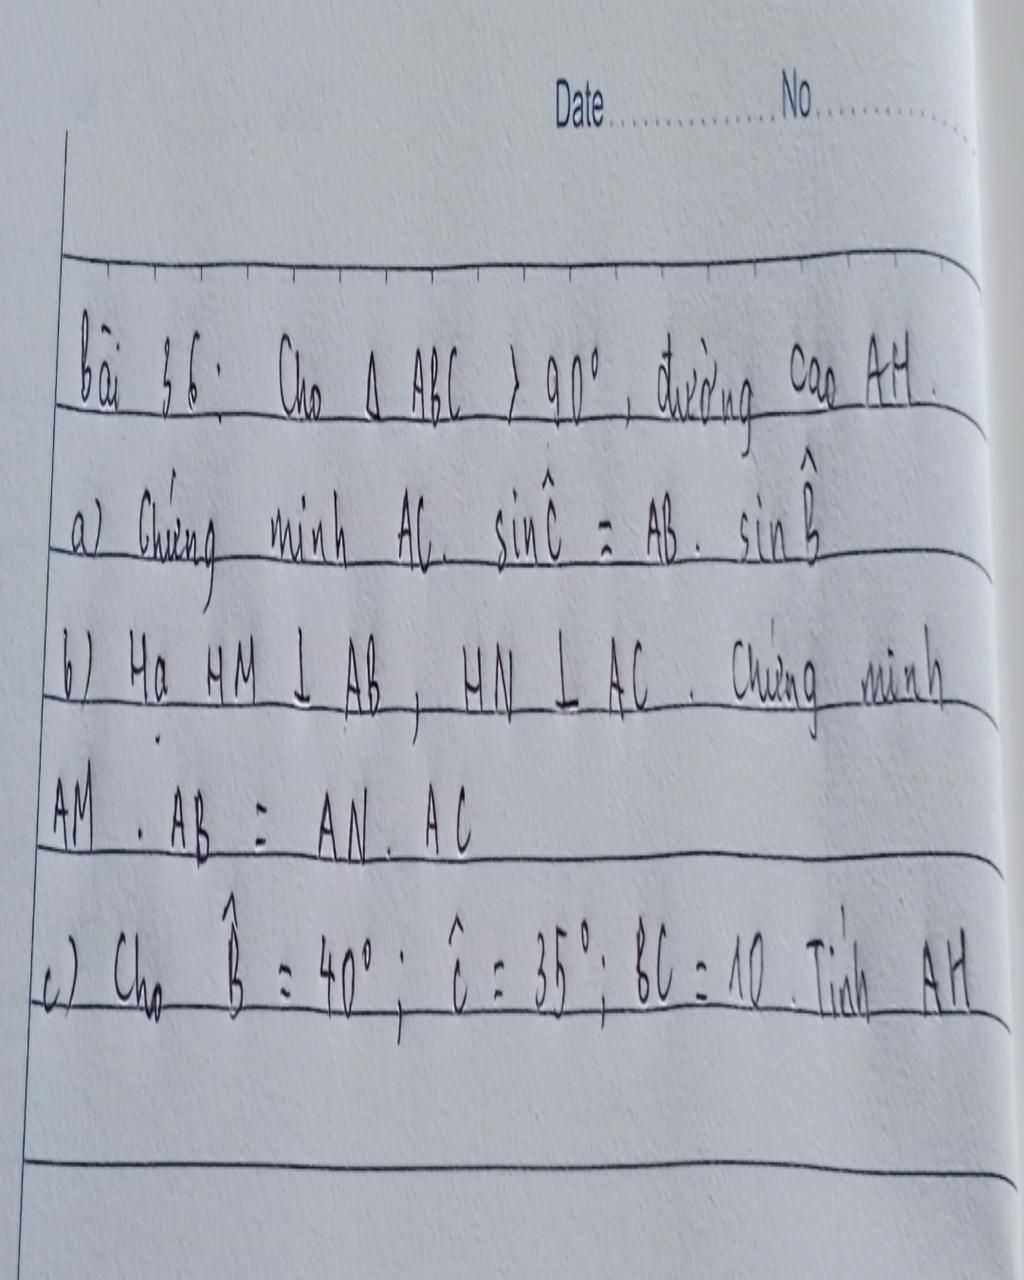 Date............... No...............
Bài 36. Cho Δ ABC > 90°, đường cao AH.
a) Chứng minh AC. sinĈ = AB. sinB̂
b) Hạ HM ⊥ AB, HN ⊥ AC. Chứng minh
AM . AB = AN. AC
c) Cho B̂ = 40°; Ĉ = 35°; BC = 10. Tính AH